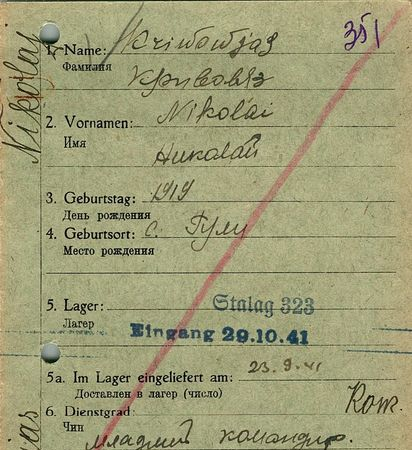 351
1. Name: Kriwowjas
Фамилия
Кривовяз
2. Vornamen: Nikolai
Имя
Николай
3. Geburtstag: 1919
День рождения
4. Geburtsort: с. Гули
Место рождения
5. Lager: Stalag 323
Лагерь
Eingang 29.10.41
5a. Im Lager eingeliefert am: 23.9.41
Доставлен в лагерь (число)
6. Dienstgrad:
Чин
младший командир.
Nikolaj